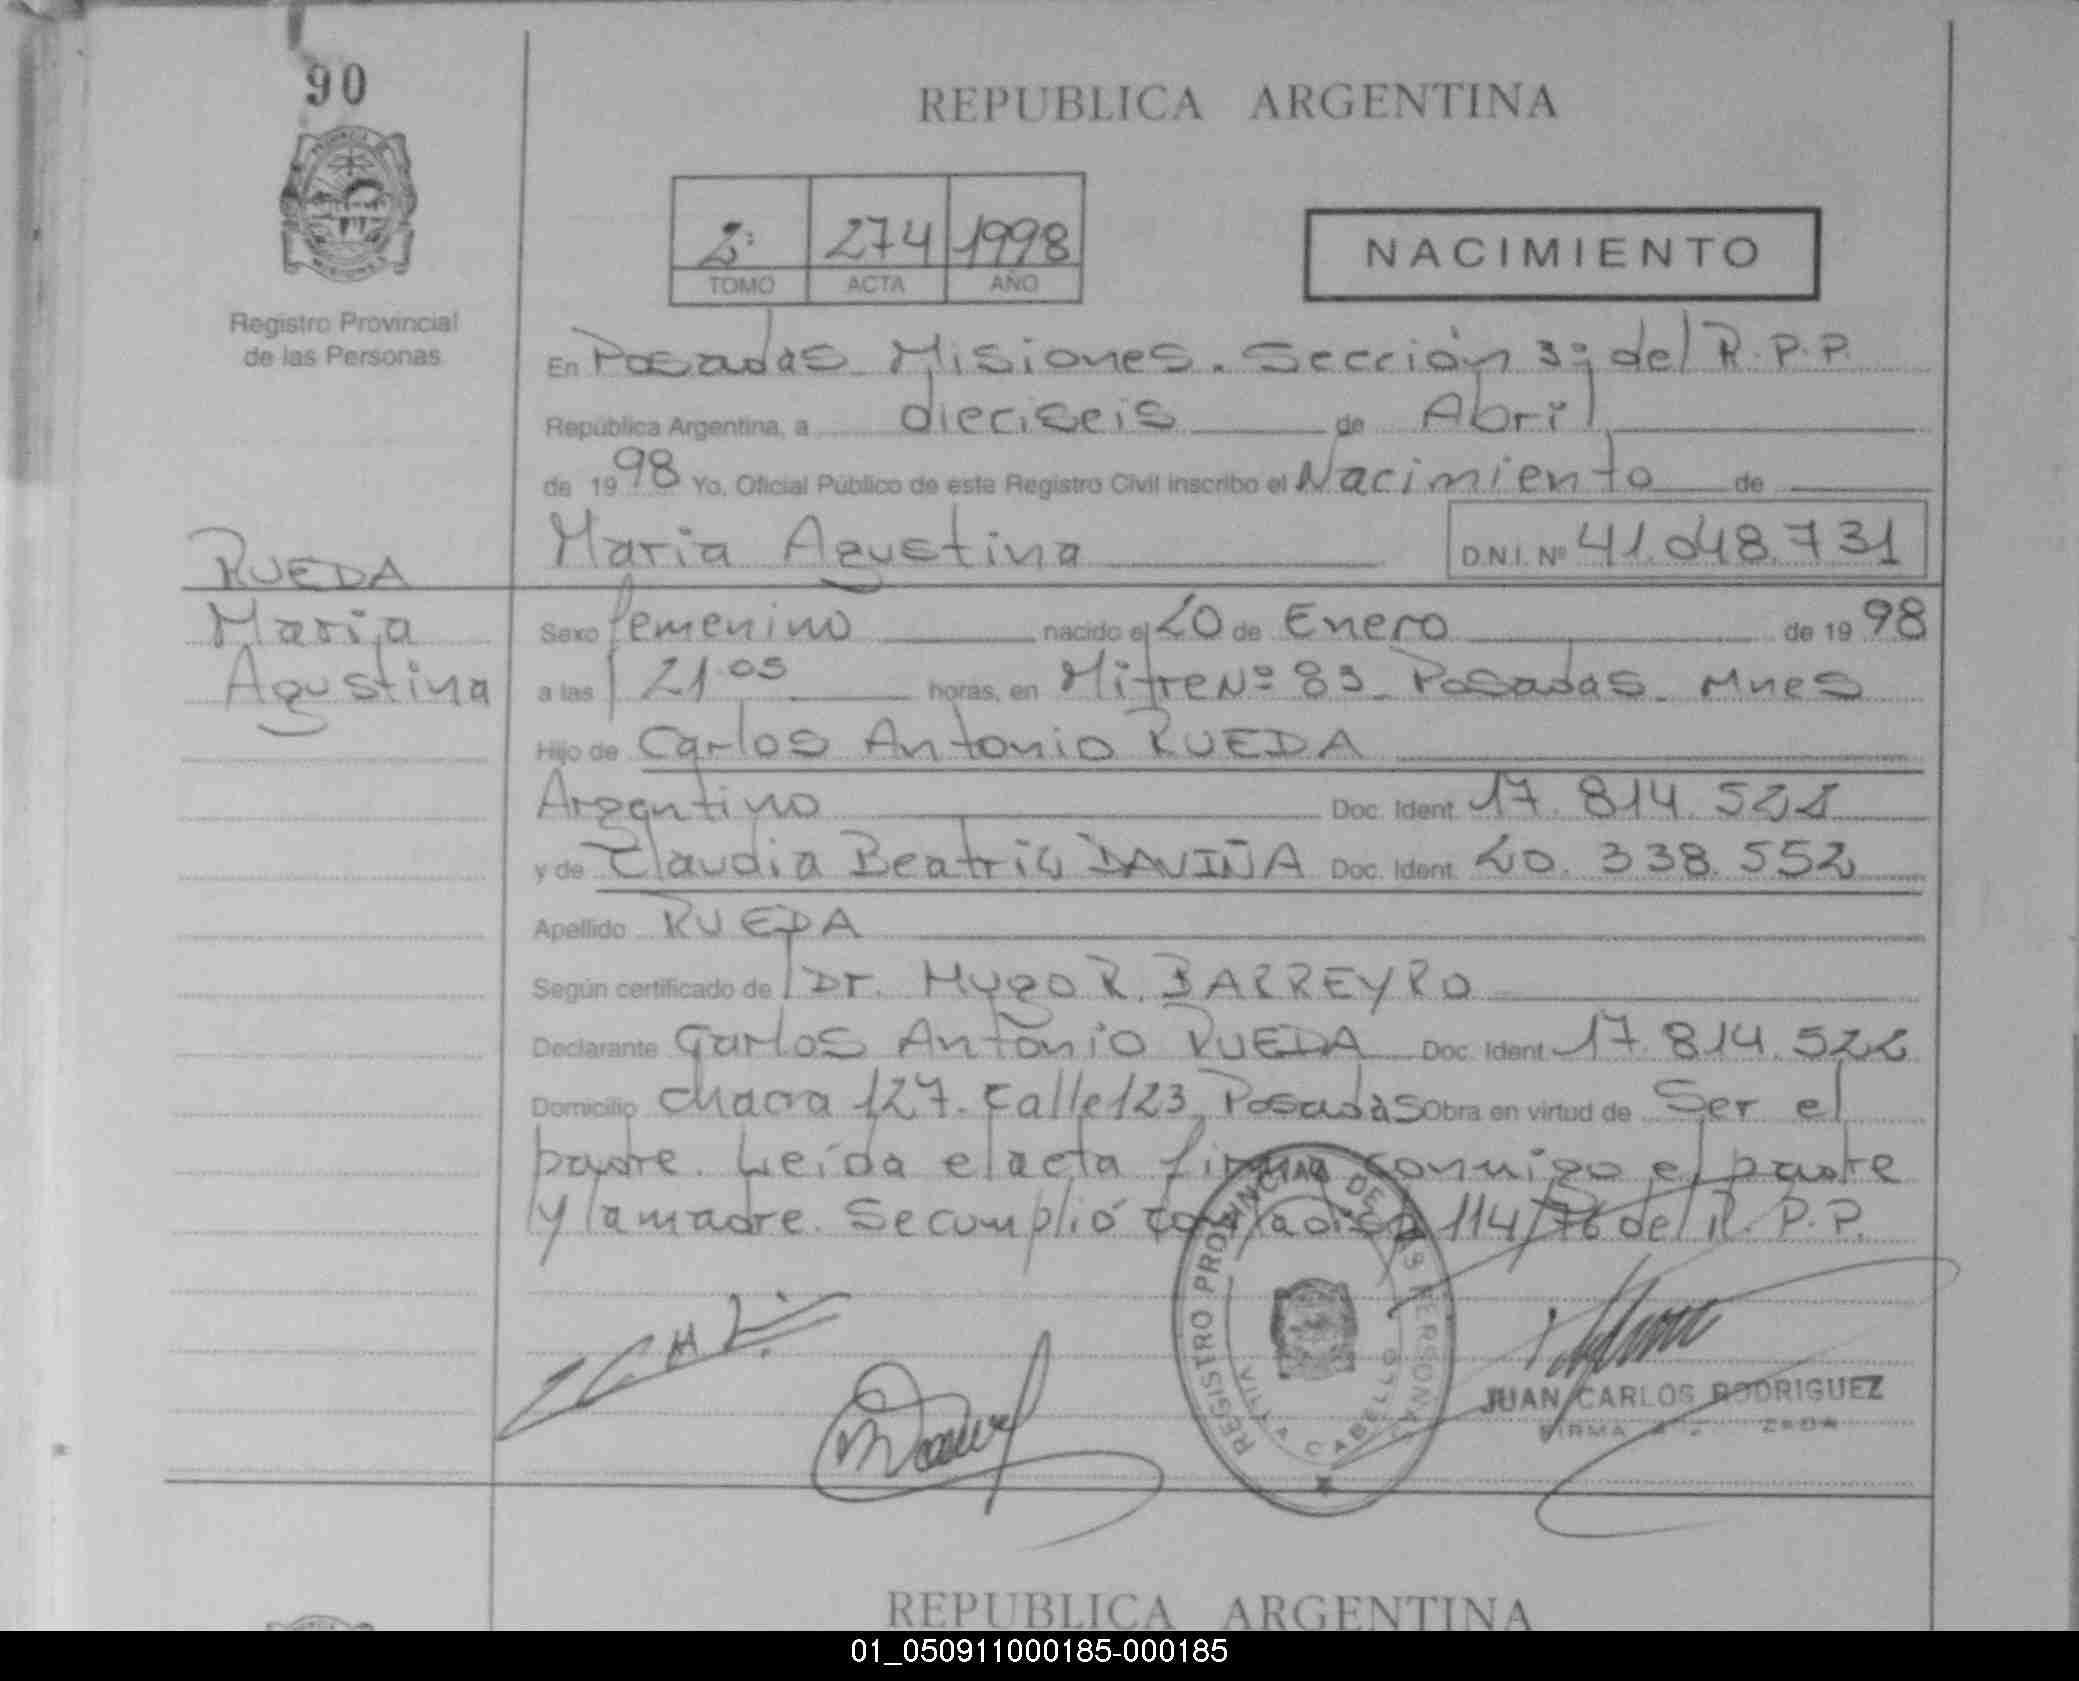 90
REPUBLICA ARGENTINA
2º 274 1998
TOMO ACTA AÑO
NACIMIENTO
Registro Provincial
de las Personas
En Posadas Misiones. Sección 3º del R.P.P.
República Argentina, a dieciseis de Abril
de 1998 Yo, Oficial Público de este Registro Civil inscribo el Nacimiento de
Maria Agustina D.N.I. Nº 41.048.731
RUEDA
Maria
Agustina
Sexo femenino nacido el 20 de Enero de 1998
a las 21.05 horas, en Mitre Nº 83 Posadas Mnes
Hijo de Carlos Antonio RUEDA
Argentino Doc. Ident. 17.814.522
y de Claudia Beatriz DAVIÑA Doc. Ident. 20.338.552
Apellido RUEDA
Según certificado de Dr. Hugo R. BARREYRO
Declarante Carlos Antonio RUEDA Doc. Ident. 17.814.522
Domicilio Chacra 127. Calle 123 Posadas Obra en virtud de Ser el
padre. Leída el acta firma conmigo el padre
y la madre. Se cumplió con la disp 114/76 del R.P.P.
REGISTRO PROVINCIAL DE LAS PERSONAS
VILLA CABELLO
JUAN CARLOS RODRIGUEZ
FIRMA
REPUBLICA ARGENTINA
01_050911000185-000185